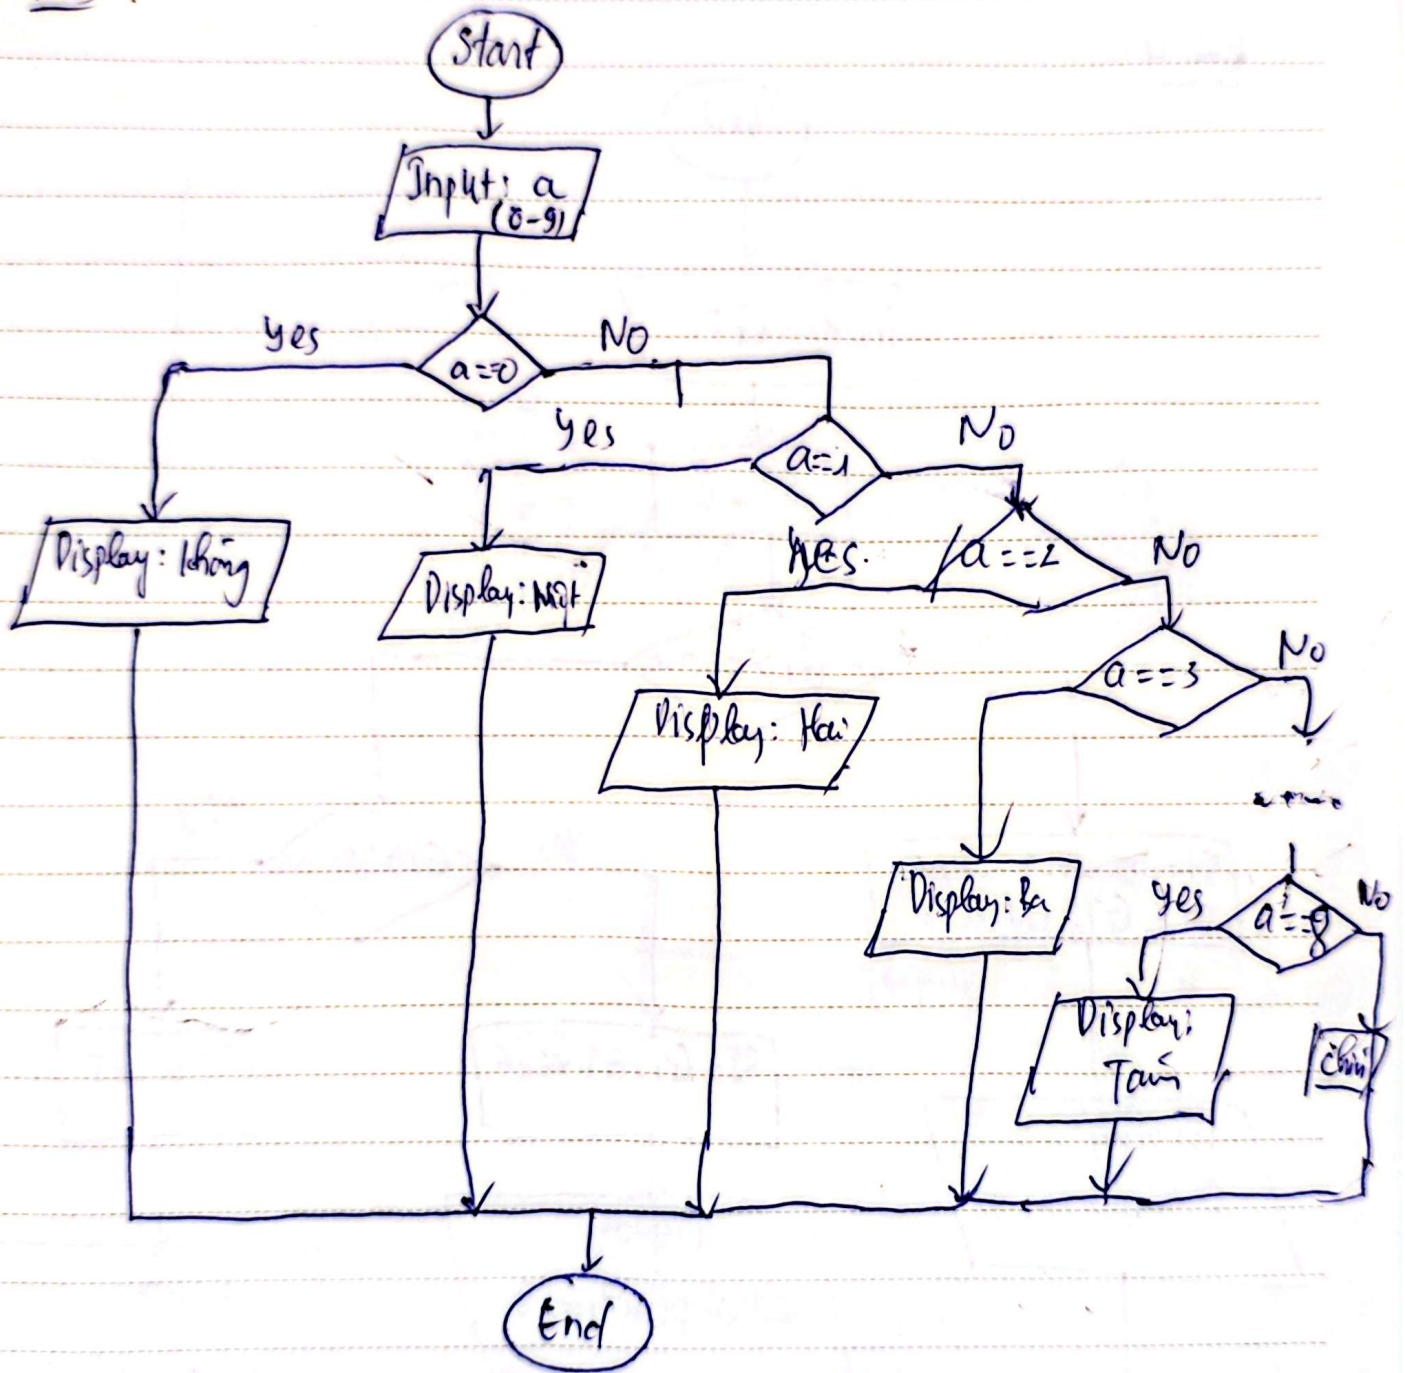 Start
Input: a
(0-9)
Yes
a==0
NO
Yes
a==1
No
Display: Không
Display: Một
Yes.
a==2
No
Display: Hai
a==3
No
Display: Ba
Yes
a==8
No
Display:
Tám
Chín
End